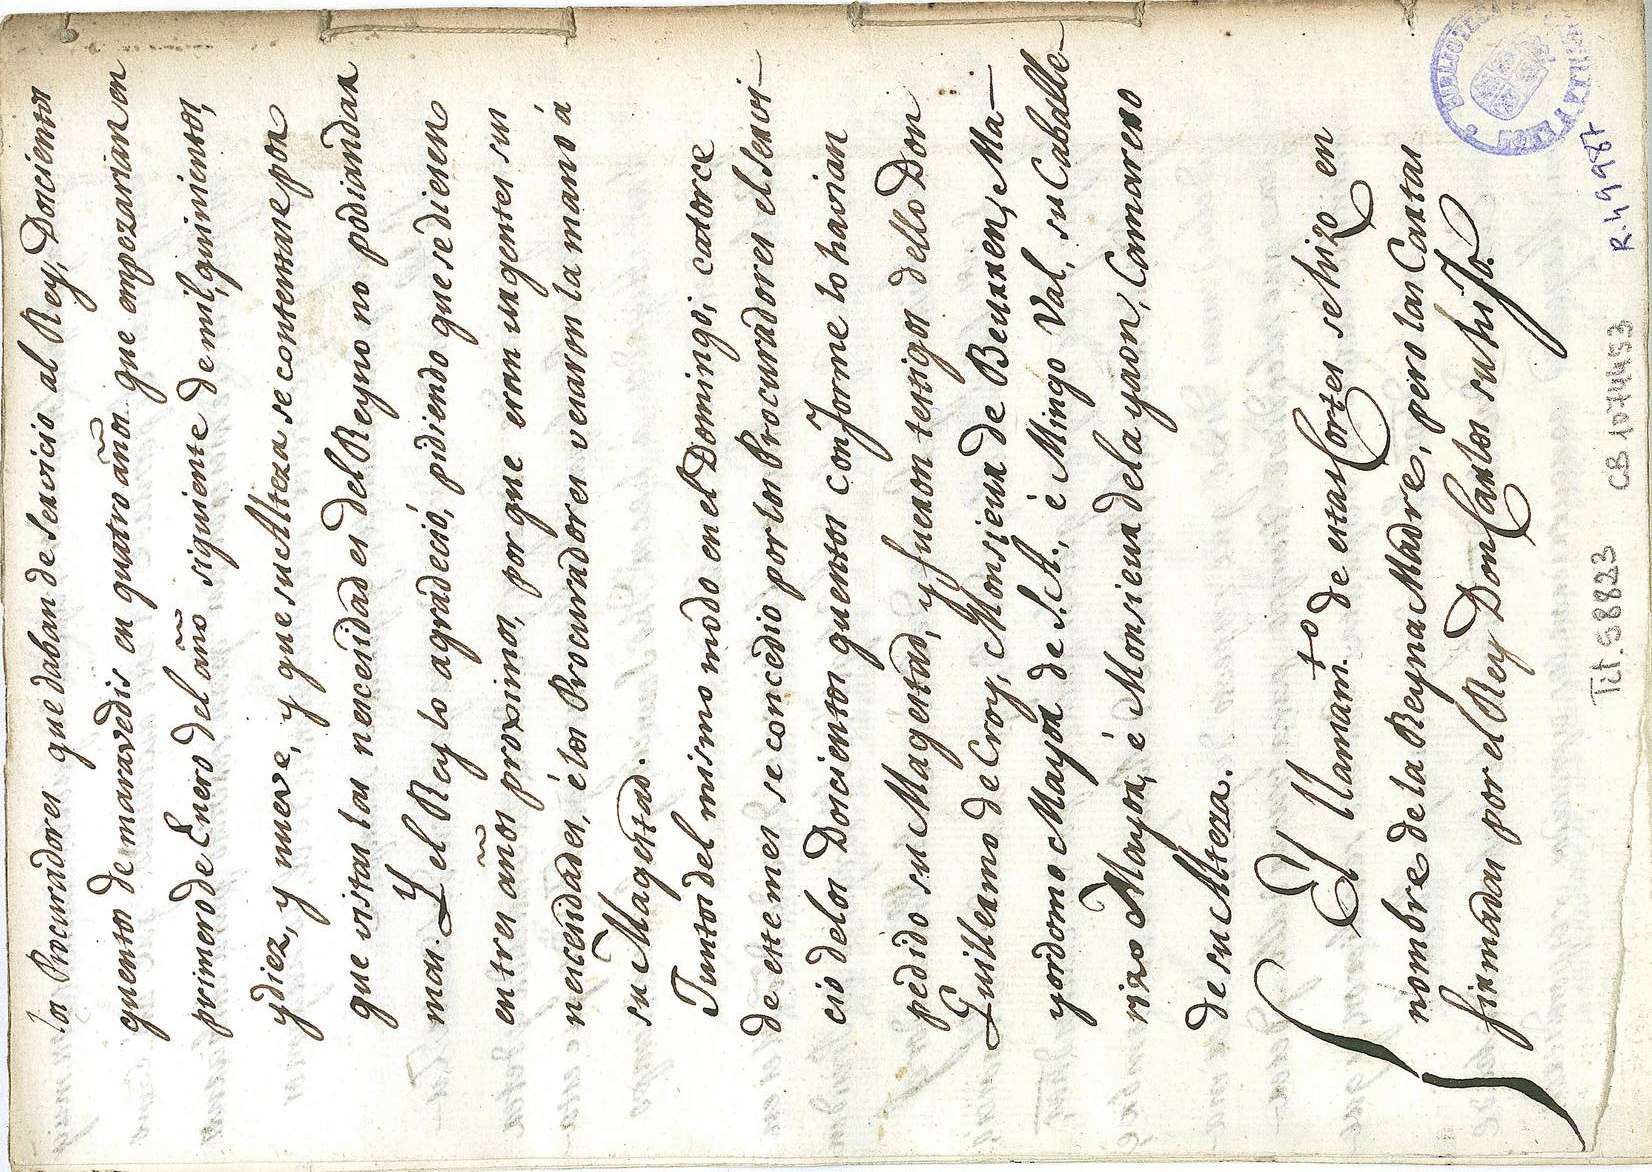 los Procuradores que daban de servicio al Rey, Docientos
quentos de maravedis en quatro años que empezarian en
primero de Enero del año siguiente de mil, quinientos,
y diez, y nueve, y que su Alteza se contentase por
que vistas las necesidades del Reyno no podian dar
mas. Y el Rey lo agradeció, pidiendo que se diesen
en tres años proximos, por que eran urgentes sus
necesidades, é los Procuradores vesaron la mano á
su Magestad.
Juntos del mismo modo en el Domingo, catorce
de este mes se concedio por los Procuradores el servi-
cio de los Docientos quentos conforme lo havian
pedido su Magestad, y fueron testigos dello Don
Guillermo de Croy, Monsieur de Beurren, Ma-
yordomo Mayor de S.A., é Mingo Val, su Caballe-
rizo Mayor, é Monsieur de la yaon, Camarero
de su Alteza.
El llamam.to de estas Cortes se hizo en
nombre de la Reyna Madre, pero las Cartas
firmadas por el Rey Don Carlos su hijo.
Tit. 58823 CB 1074453 R. 44987
BIBLIOTECA